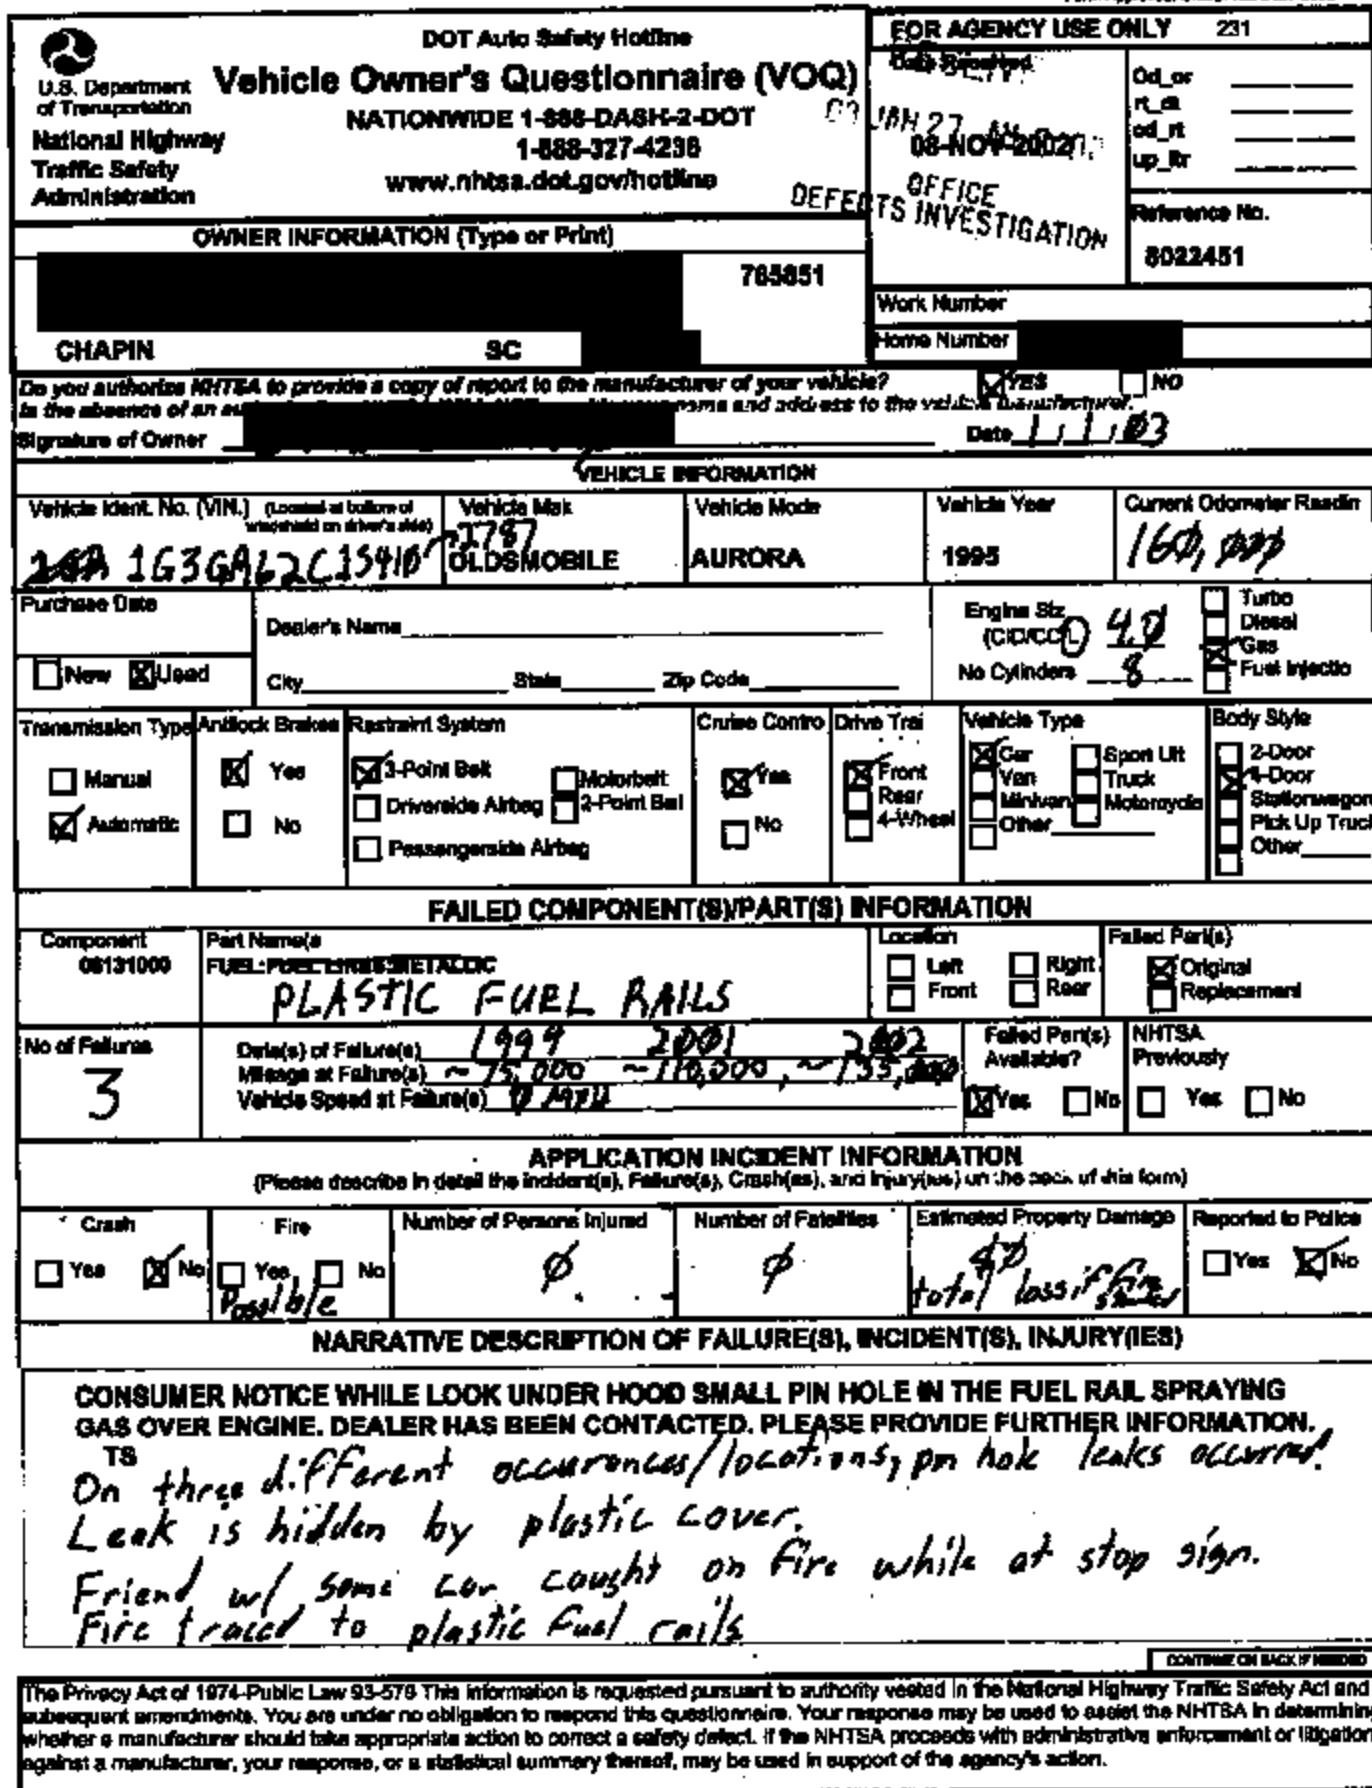 DOT Auto Safety Hotline
Vehicle Owner's Questionnaire (VOQ)
NATIONWIDE 1-888-DASH-2-DOT
1-888-327-4236
www.nhtsa.dot.gov/hotline
U.S. Department
of Transportation
National Highway
Traffic Safety
Administration
FOR AGENCY USE ONLY 231
Date Received
JAN 27
08-NOV-2002
OFFICE
DEFECTS INVESTIGATION
Od_or
rt_dt
od_rt
up_ltr
Reference No.
8022451
OWNER INFORMATION (Type or Print)
765851
CHAPIN SC
Work Number
Home Number
Do you authorize NHTSA to provide a copy of report to the manufacturer of your vehicle? YES NO
In the absence of an name and address to the vehicle manufacturer.
Signature of Owner Date 1/1/03
VEHICLE INFORMATION
Vehicle Ident. No. (VIN.) (Located at bottom of
windshield on driver's side)
Vehicle Mak Vehicle Mode Vehicle Year Current Odometer Readin
2787
OLDSMOBILE AURORA 1995 160,000
Purchase Date
New Used
Dealer's Name
City State Zip Code
Engine Siz
(CID/CC/L) 4.0
No Cylinders 8
Turbo
Diesel
Gas
Fuel Injectio
Transmission Type Antilock Brakes Restraint System Cruise Contro Drive Trai Vehicle Type Body Style
Manual
Automatic
Yes
No
3-Point Belt Motorbelt
Driverside Airbag 2-Point Bel
Passengerside Airbag
Yes
No
Front
Rear
4-Wheel
Car Sport Utl
Van Truck
Minivan Motorcycle
Other
2-Door
4-Door
Stationwagon
Pick Up Truck
Other
FAILED COMPONENT(S)/PART(S) INFORMATION
Component Part Name(s Location Failed Part(s)
06131000 FUEL:FUEL LINES:METALLIC
PLASTIC FUEL RAILS
Left Right
Front Rear
Original
Replacement
No of Failures
3
Date(s) of Failure(s) 1999 2001 2002
Mileage at Failure(s) ~75,000 ~110,000, ~155,000
Vehicle Speed at Failure(s) 0 MPH
Failed Part(s)
Available?
Yes No
NHTSA
Previously
Yes No
APPLICATION INCIDENT INFORMATION
(Please describe in detail the incident(s), Failure(s), Crash(es), and injury(ies) on the back of this form)
Crash Fire Number of Persons Injured Number of Fatalities Estimated Property Damage Reported to Police
Yes No
Yes, No
Possible
Ø
Ø
$0
total loss if fire
Yes No
NARRATIVE DESCRIPTION OF FAILURE(S), INCIDENT(S), INJURY(IES)
CONSUMER NOTICE WHILE LOOK UNDER HOOD SMALL PIN HOLE IN THE FUEL RAIL SPRAYING
GAS OVER ENGINE. DEALER HAS BEEN CONTACTED. PLEASE PROVIDE FURTHER INFORMATION.
TS
On three different occurences/locations, pin hole leaks occurred.
Leak is hidden by plastic cover.
Friend w/ same car caught on fire while at stop sign.
Fire traced to plastic fuel rails
CONTINUE ON BACK IF NEEDED
The Privacy Act of 1974-Public Law 93-579 This information is requested pursuant to authority vested in the National Highway Traffic Safety Act and
subsequent amendments. You are under no obligation to respond this questionnaire. Your response may be used to assist the NHTSA in determining
whether a manufacturer should take appropriate action to correct a safety defect. If the NHTSA proceeds with administrative enforcement or litigation
against a manufacturer, your response, or a statistical summary thereof, may be used in support of the agency's action.